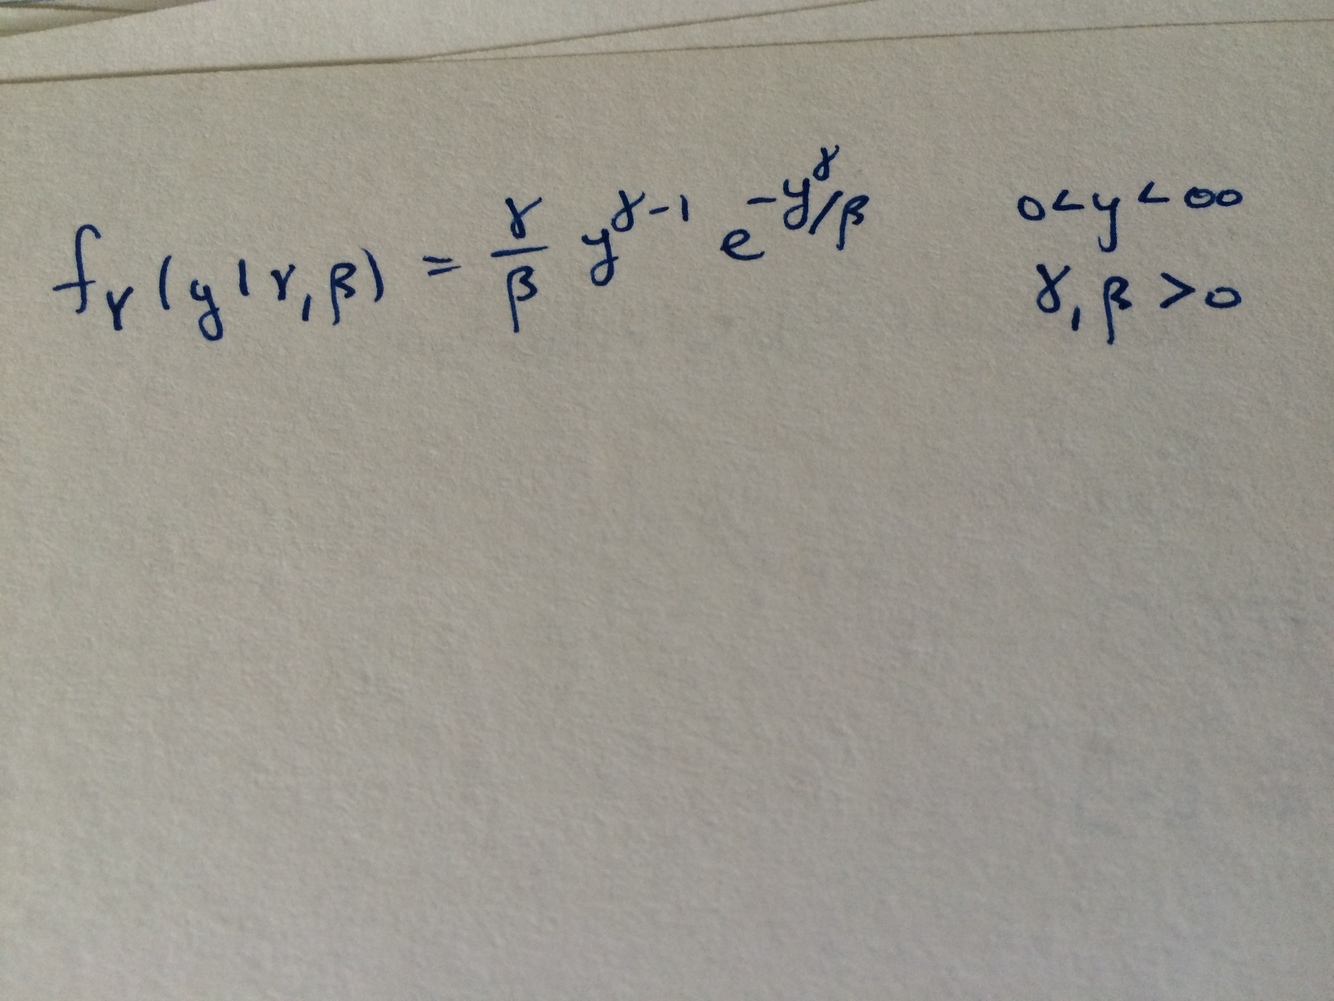 f_Y(y|γ,β) = γ/β y^{γ-1} e^{-y^γ/β} 0<y<∞
γ,β >0